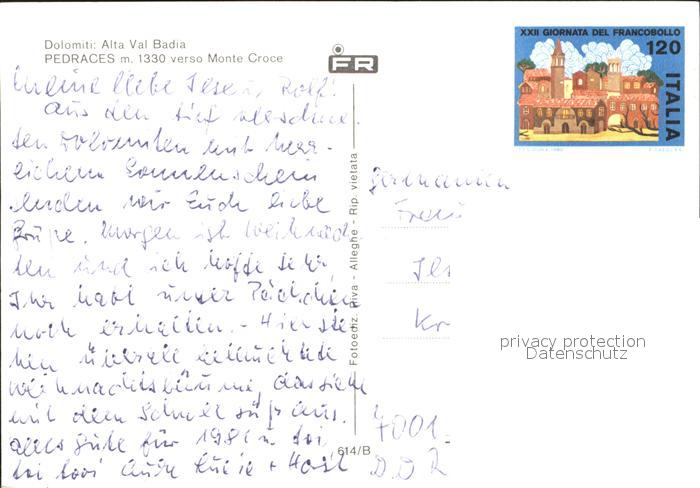 Dolomiti: Alta Val Badia
PEDRACES m. 1330 verso Monte Croce
FR
XXII GIORNATA DEL FRANCOBOLLO
120
ITALIA
Meine liebe Ilse u. Rolf!
Aus den tief verschnei-
ten Dolomiten mit herr-
lichem Sonnenschein
senden wir Euch liebe
Grüße. Morgen ist Weihnach
ten und ich hoffe sehr,
Ihr habt unser Päckchen
noch erhalten. - Hier ste-
hen überall erleuchtete
Weihnachtsbäume, das sieht
mit dem Schnee süß aus.
Alles Gute für 1981 u. toi
toi toi Eure Lucie + Horst
Fotoediz. Riva - Alleghe - Rip. vietata
614/B
Germania
Frau
Ils
Kr
7001
DDR
privacy protection
Datenschutz